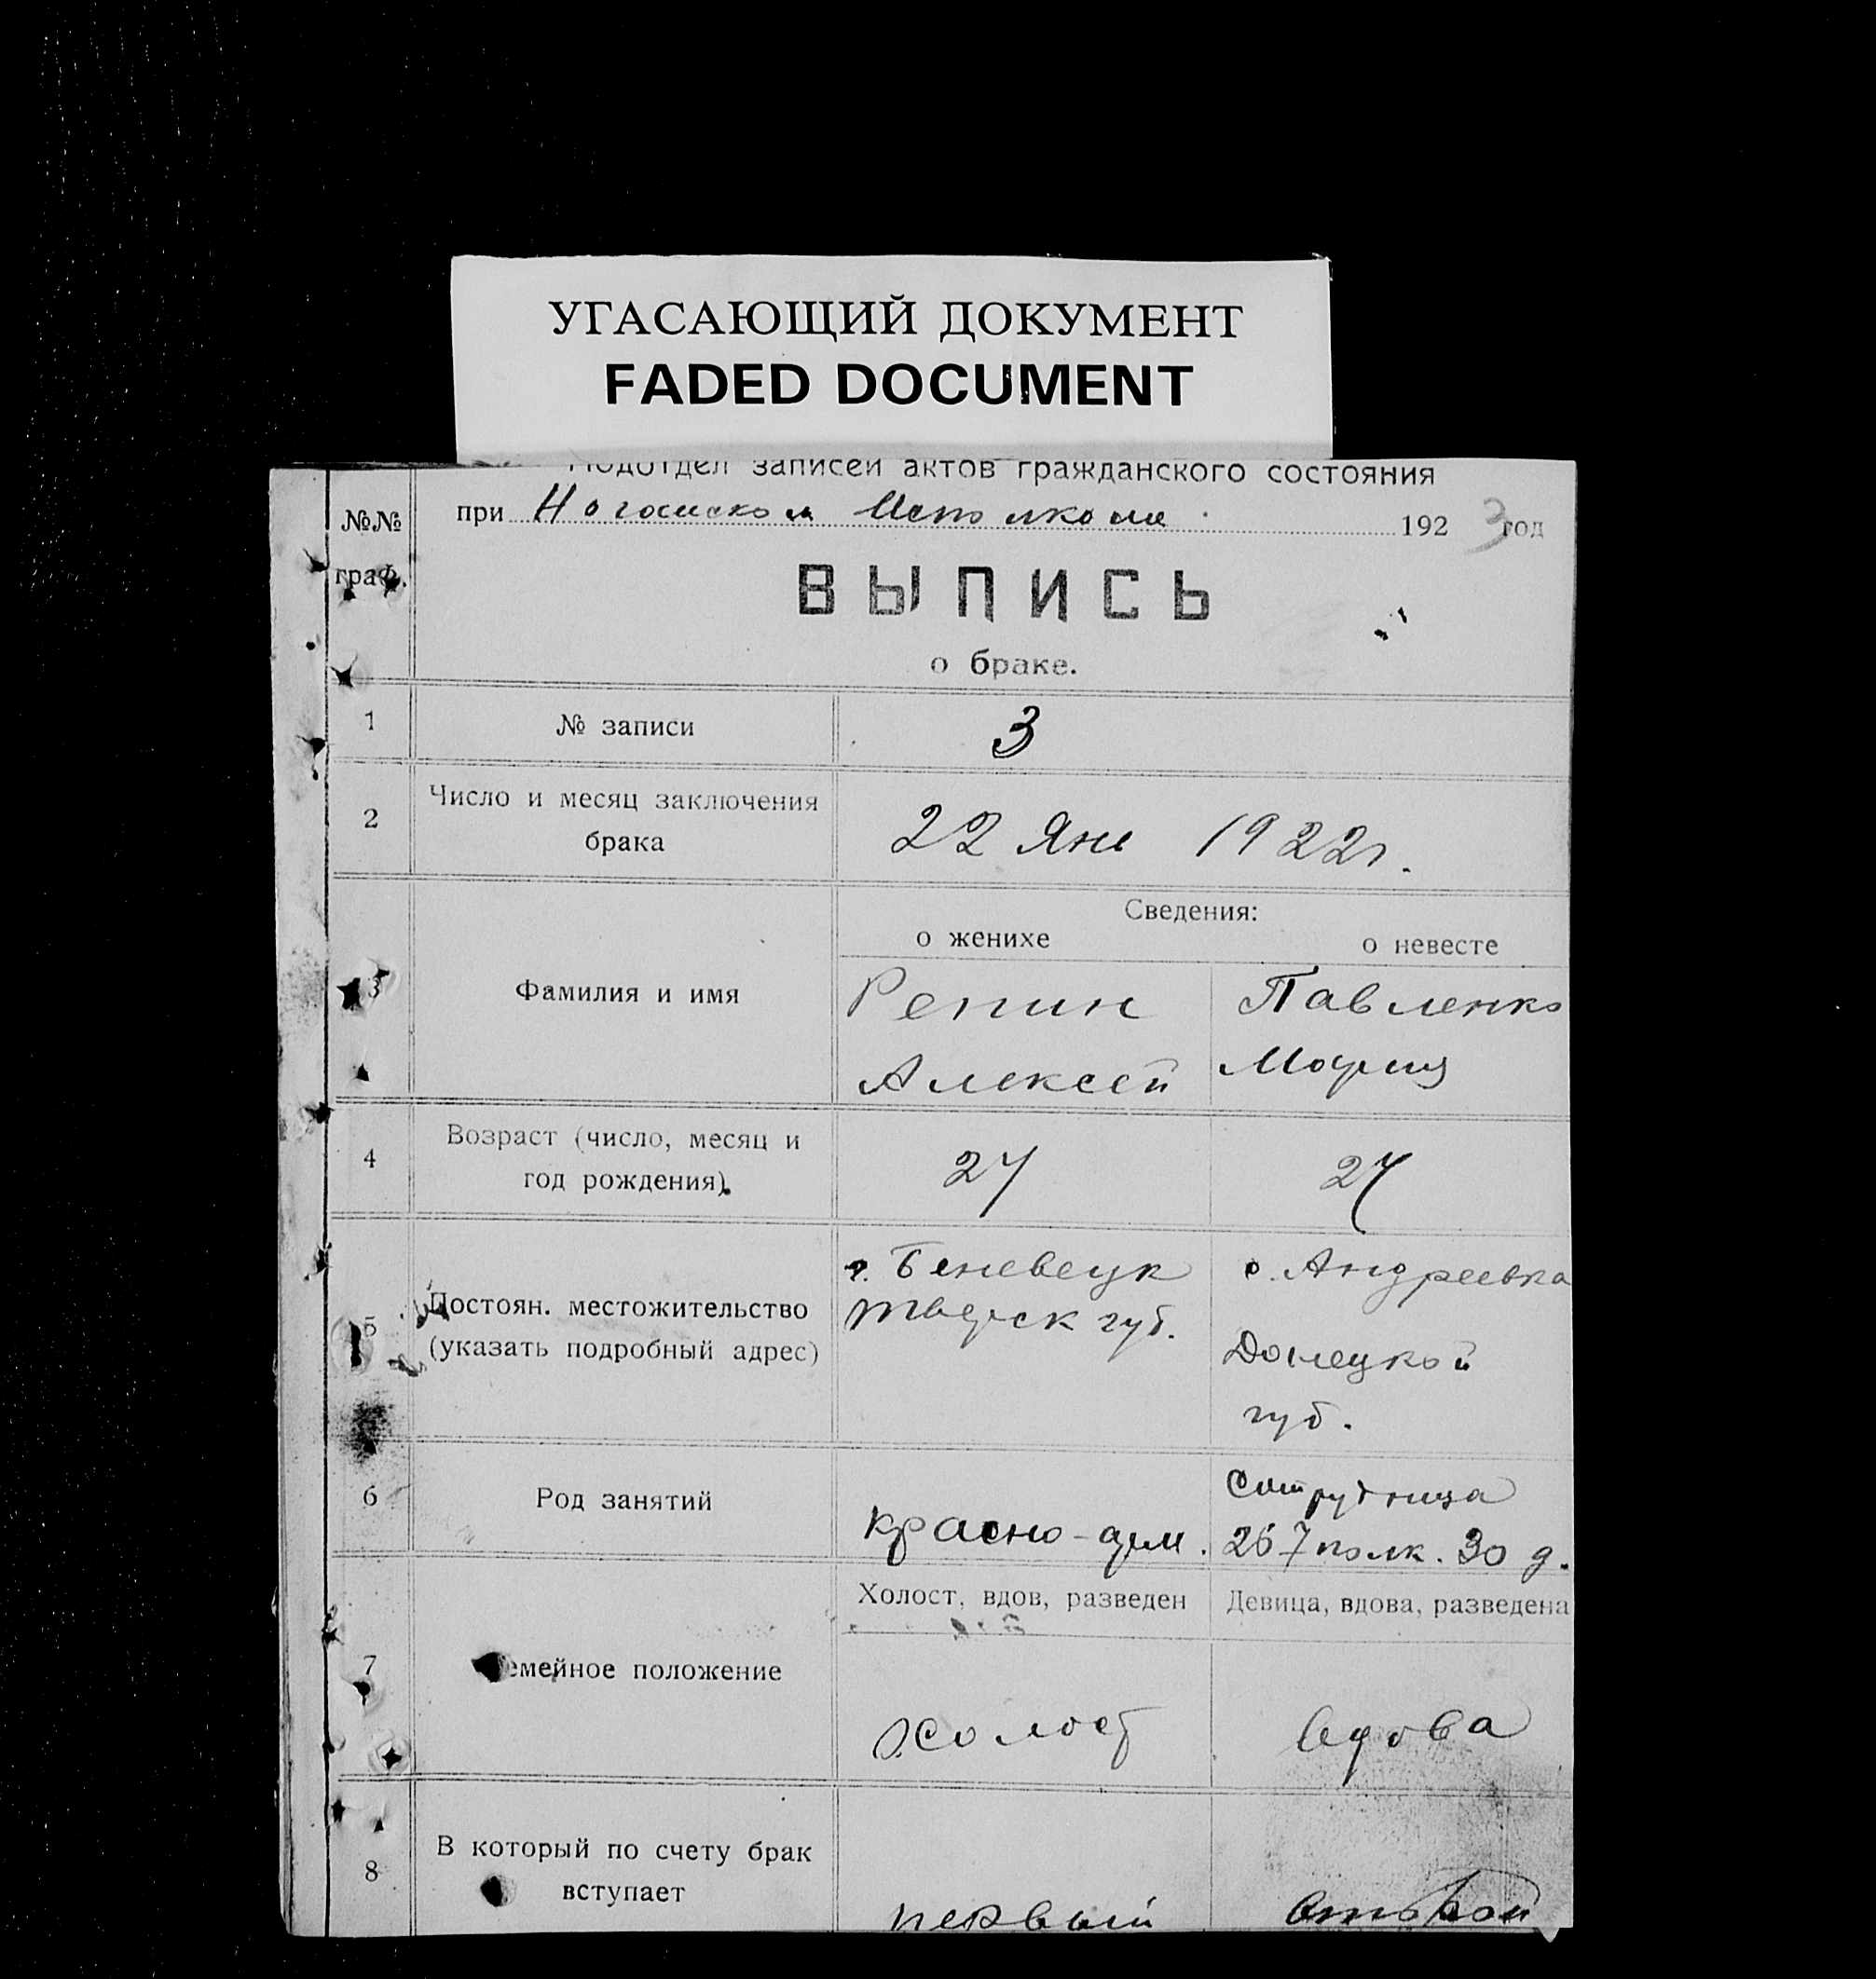 УГАСАЮЩИЙ ДОКУМЕНТ
FADED DOCUMENT
Подотдел записей актов гражданского состояния
№№ граф.
при 1923 год
ВЫПИСЬ
о браке.
1 № записи 3
2 Число и месяц заключения
брака 22 Янв 1922 г.
Сведения:
о женихе о невесте
3 Фамилия и имя Репин Павленко
Алексей Мария
4 Возраст (число, месяц и
год рождения). 27 27
5 Постоян. местожительство
(указать подробный адрес)
г. с. Андреевка
губ. Донецкой
губ.
6 Род занятий
красно-арм. Сотрудница
267 полк. 30 д.
Холост, вдов, разведен Девица, вдова, разведена
7 семейное положение
холост вдова
8 В который по счету брак
вступает
первый второй